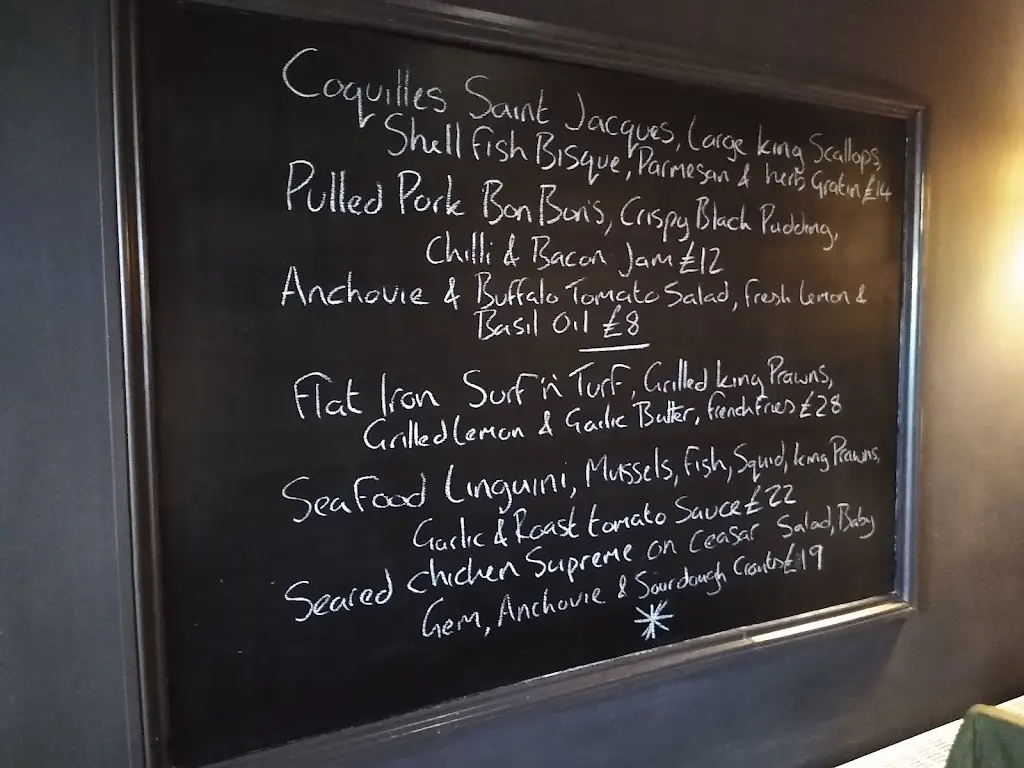 Coquilles Saint Jacques, Large King Scallops,
Shell Fish Bisque, Parmesan & herb Gratin £14
Pulled Pork Bon Bon's, Crispy Black Pudding,
Chilli & Bacon Jam £12
Anchovie & Buffalo Tomato Salad, fresh lemon &
Basil Oil £8
Flat Iron Surf 'n' Turf, Grilled King Prawns,
Grilled lemon & Garlic Butter, french fries £28
Seafood Linguini, Mussels, Fish, Squid, King Prawns,
Garlic & Roast tomato Sauce £22
Seared Chicken Supreme on Ceasar Salad, Baby
Gem, Anchovie & Sourdough Crouts £19